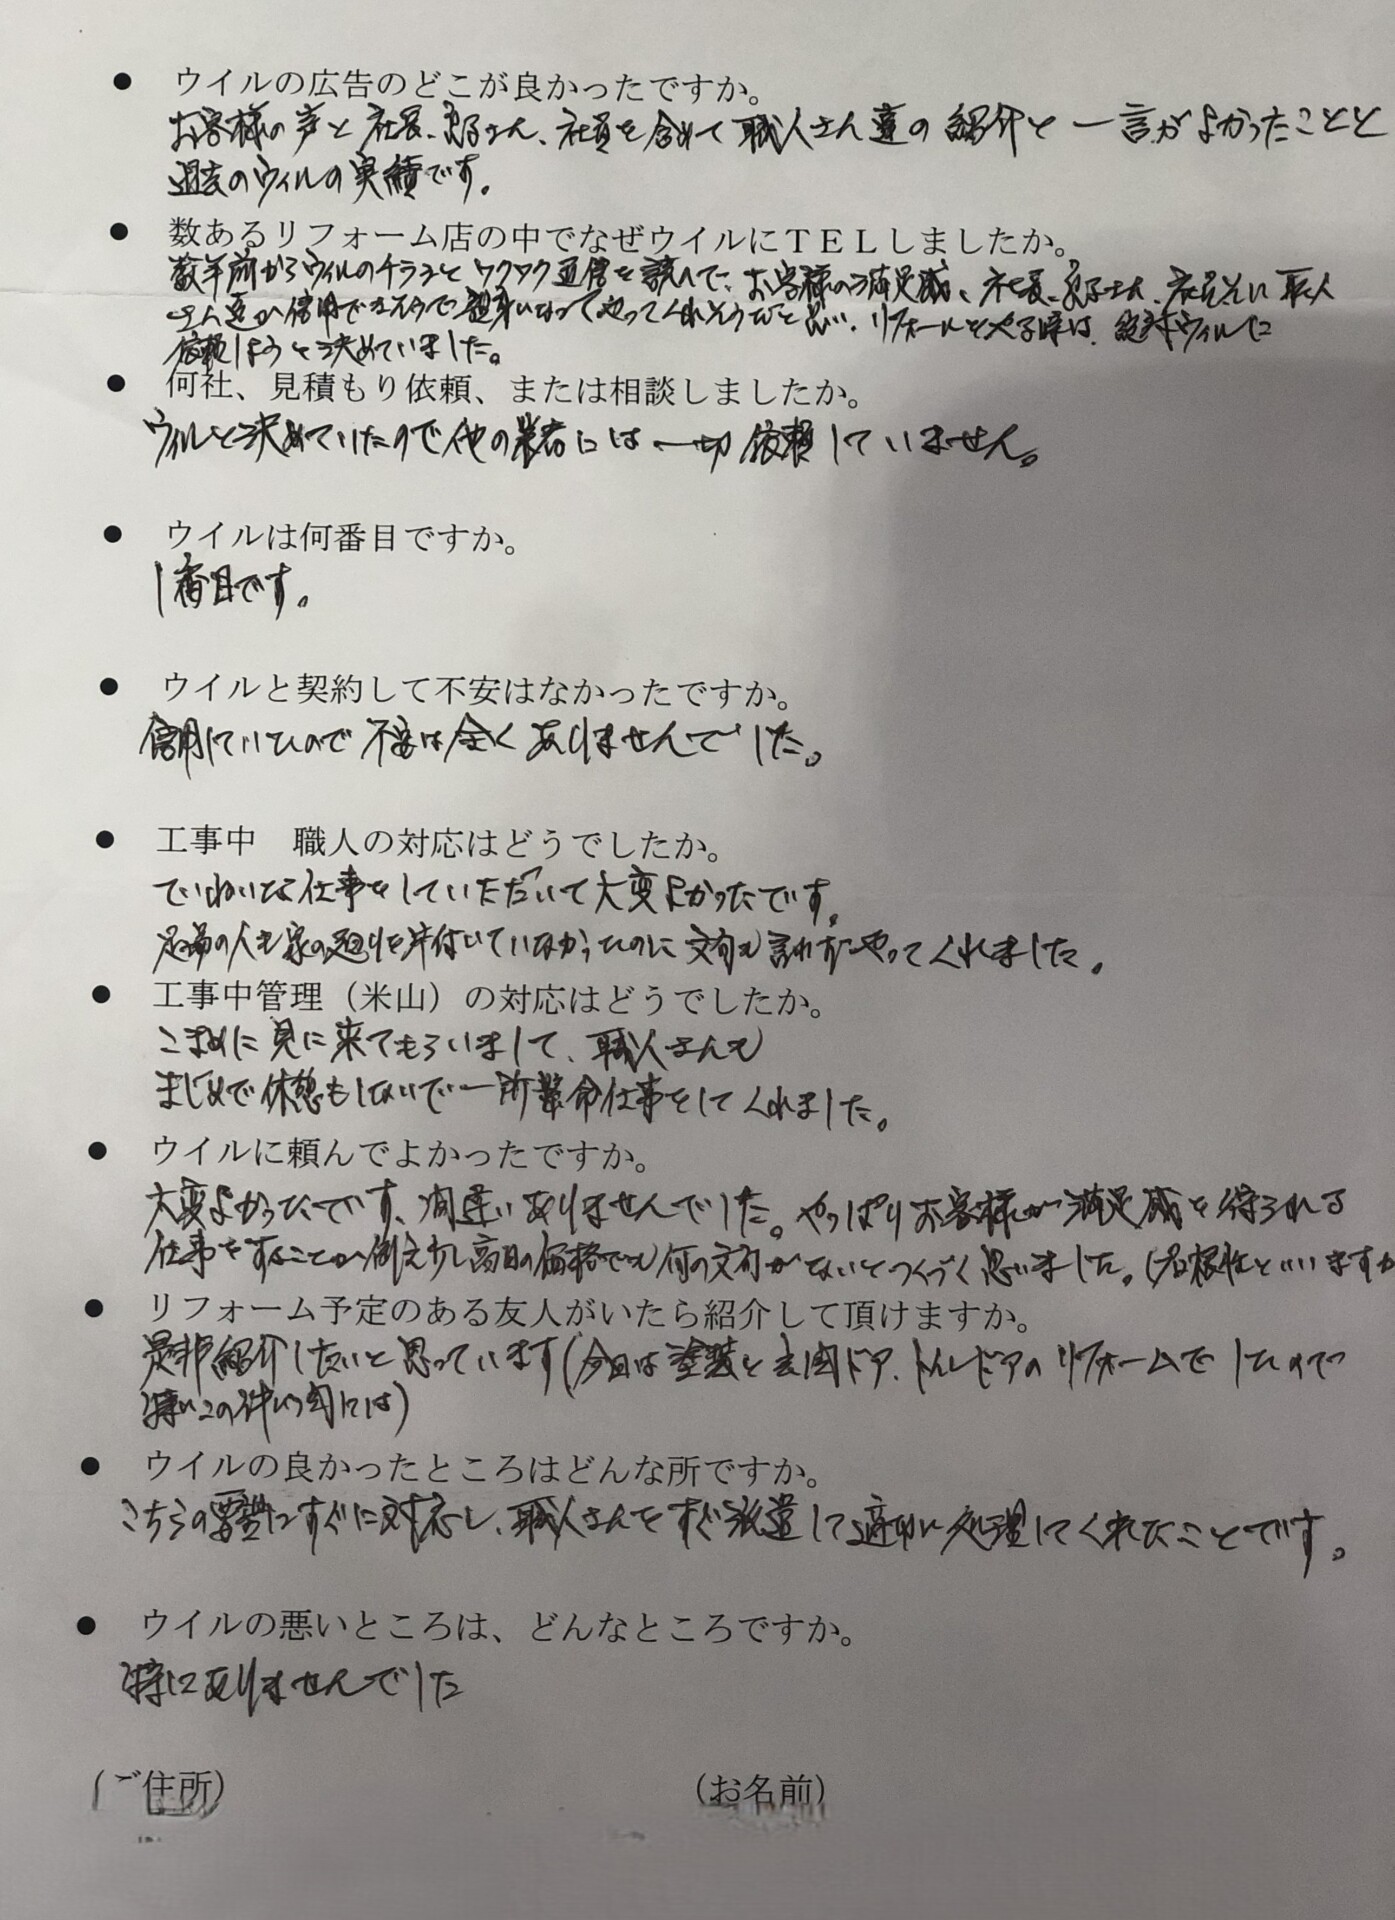 ● ウイルの広告のどこが良かったですか。
お客様の声と社長、良子さん、社員を含めて職人さん達の紹介と一言がよかったことと
過去のウィルの実績です。
● 数あるリフォーム店の中でなぜウイルにTELしましたか。
数年前からウィルのチラシとワクワク通信を読んで、お客様の満足感、社長、良子さん、職人
さん達が信用できそうで親身になってやってくれそうだと思い、リフォームをやる時は、絶対ウィルに
依頼しようと決めていました。
● 何社、見積もり依頼、または相談しましたか。
ウィルと決めていたので他の業者には一切依頼していません。
● ウイルは何番目ですか。
1番目です。
● ウイルと契約して不安はなかったですか。
信用していたので不安は全くありませんでした。
● 工事中　職人の対応はどうでしたか。
ていねいな仕事をしていただいて大変よかったです。
足場の人も家の廻りを片付いていなかったのに文句も言わずにやってくれました。
● 工事中管理（米山）の対応はどうでしたか。
こまめに見に来てもらいまして、職人さんも
まじめで休憩もしないで一所懸命仕事をしてくれました。
● ウイルに頼んでよかったですか。
大変よかったです、間違いありませんでした。やっぱりお客様が満足感を得られる
仕事をすることが例え少し高目の価格でも何の文句がないとつくづく思いました。
● リフォーム予定のある友人がいたら紹介して頂けますか。
是非紹介したいと思っています(今回は塗装と玄関ドア、トイレドアのリフォームでしたので
特にこの件に関しては)
● ウイルの良かったところはどんな所ですか。
こちらの要望にすぐに対応し、職人さんをすぐ派遣して適切に処理してくれたことです。
● ウイルの悪いところは、どんなところですか。
特にありませんでした
(ご住所)　(お名前)